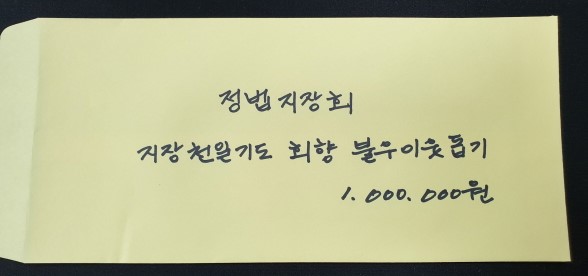 정법지장회
지장천일기도 회향 불우이웃돕기
1.000.000원